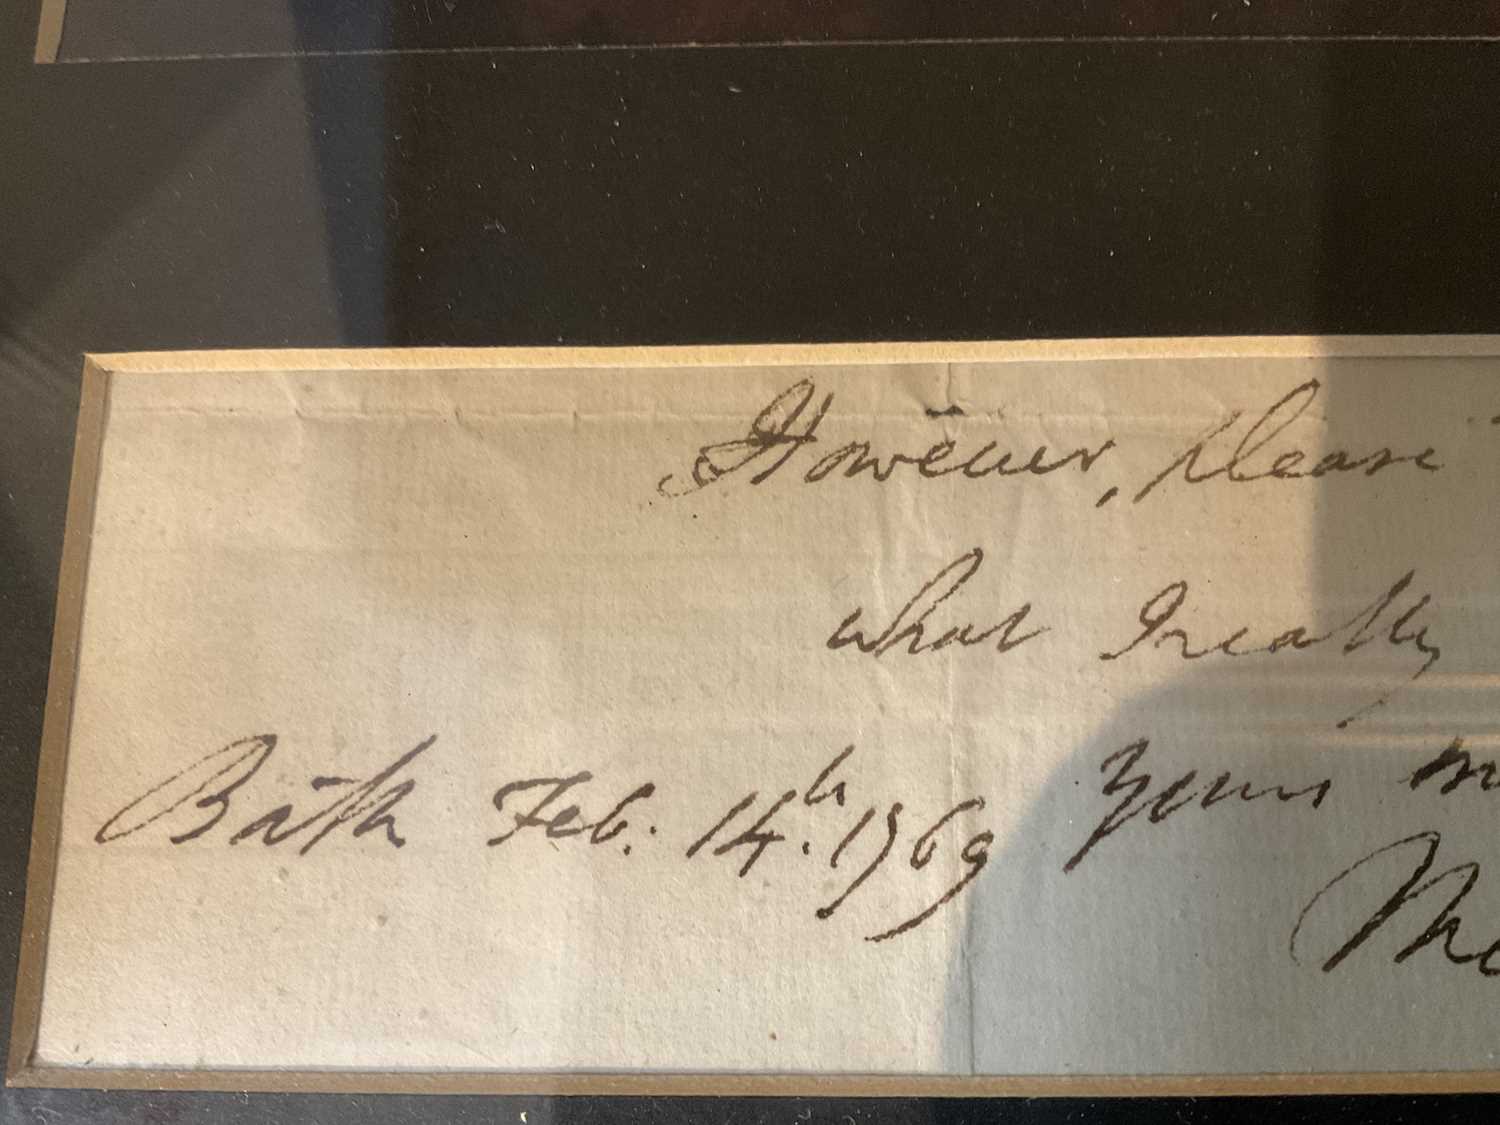 However, please
what I really
Bath Feb. 14th. 1769 yours m
The